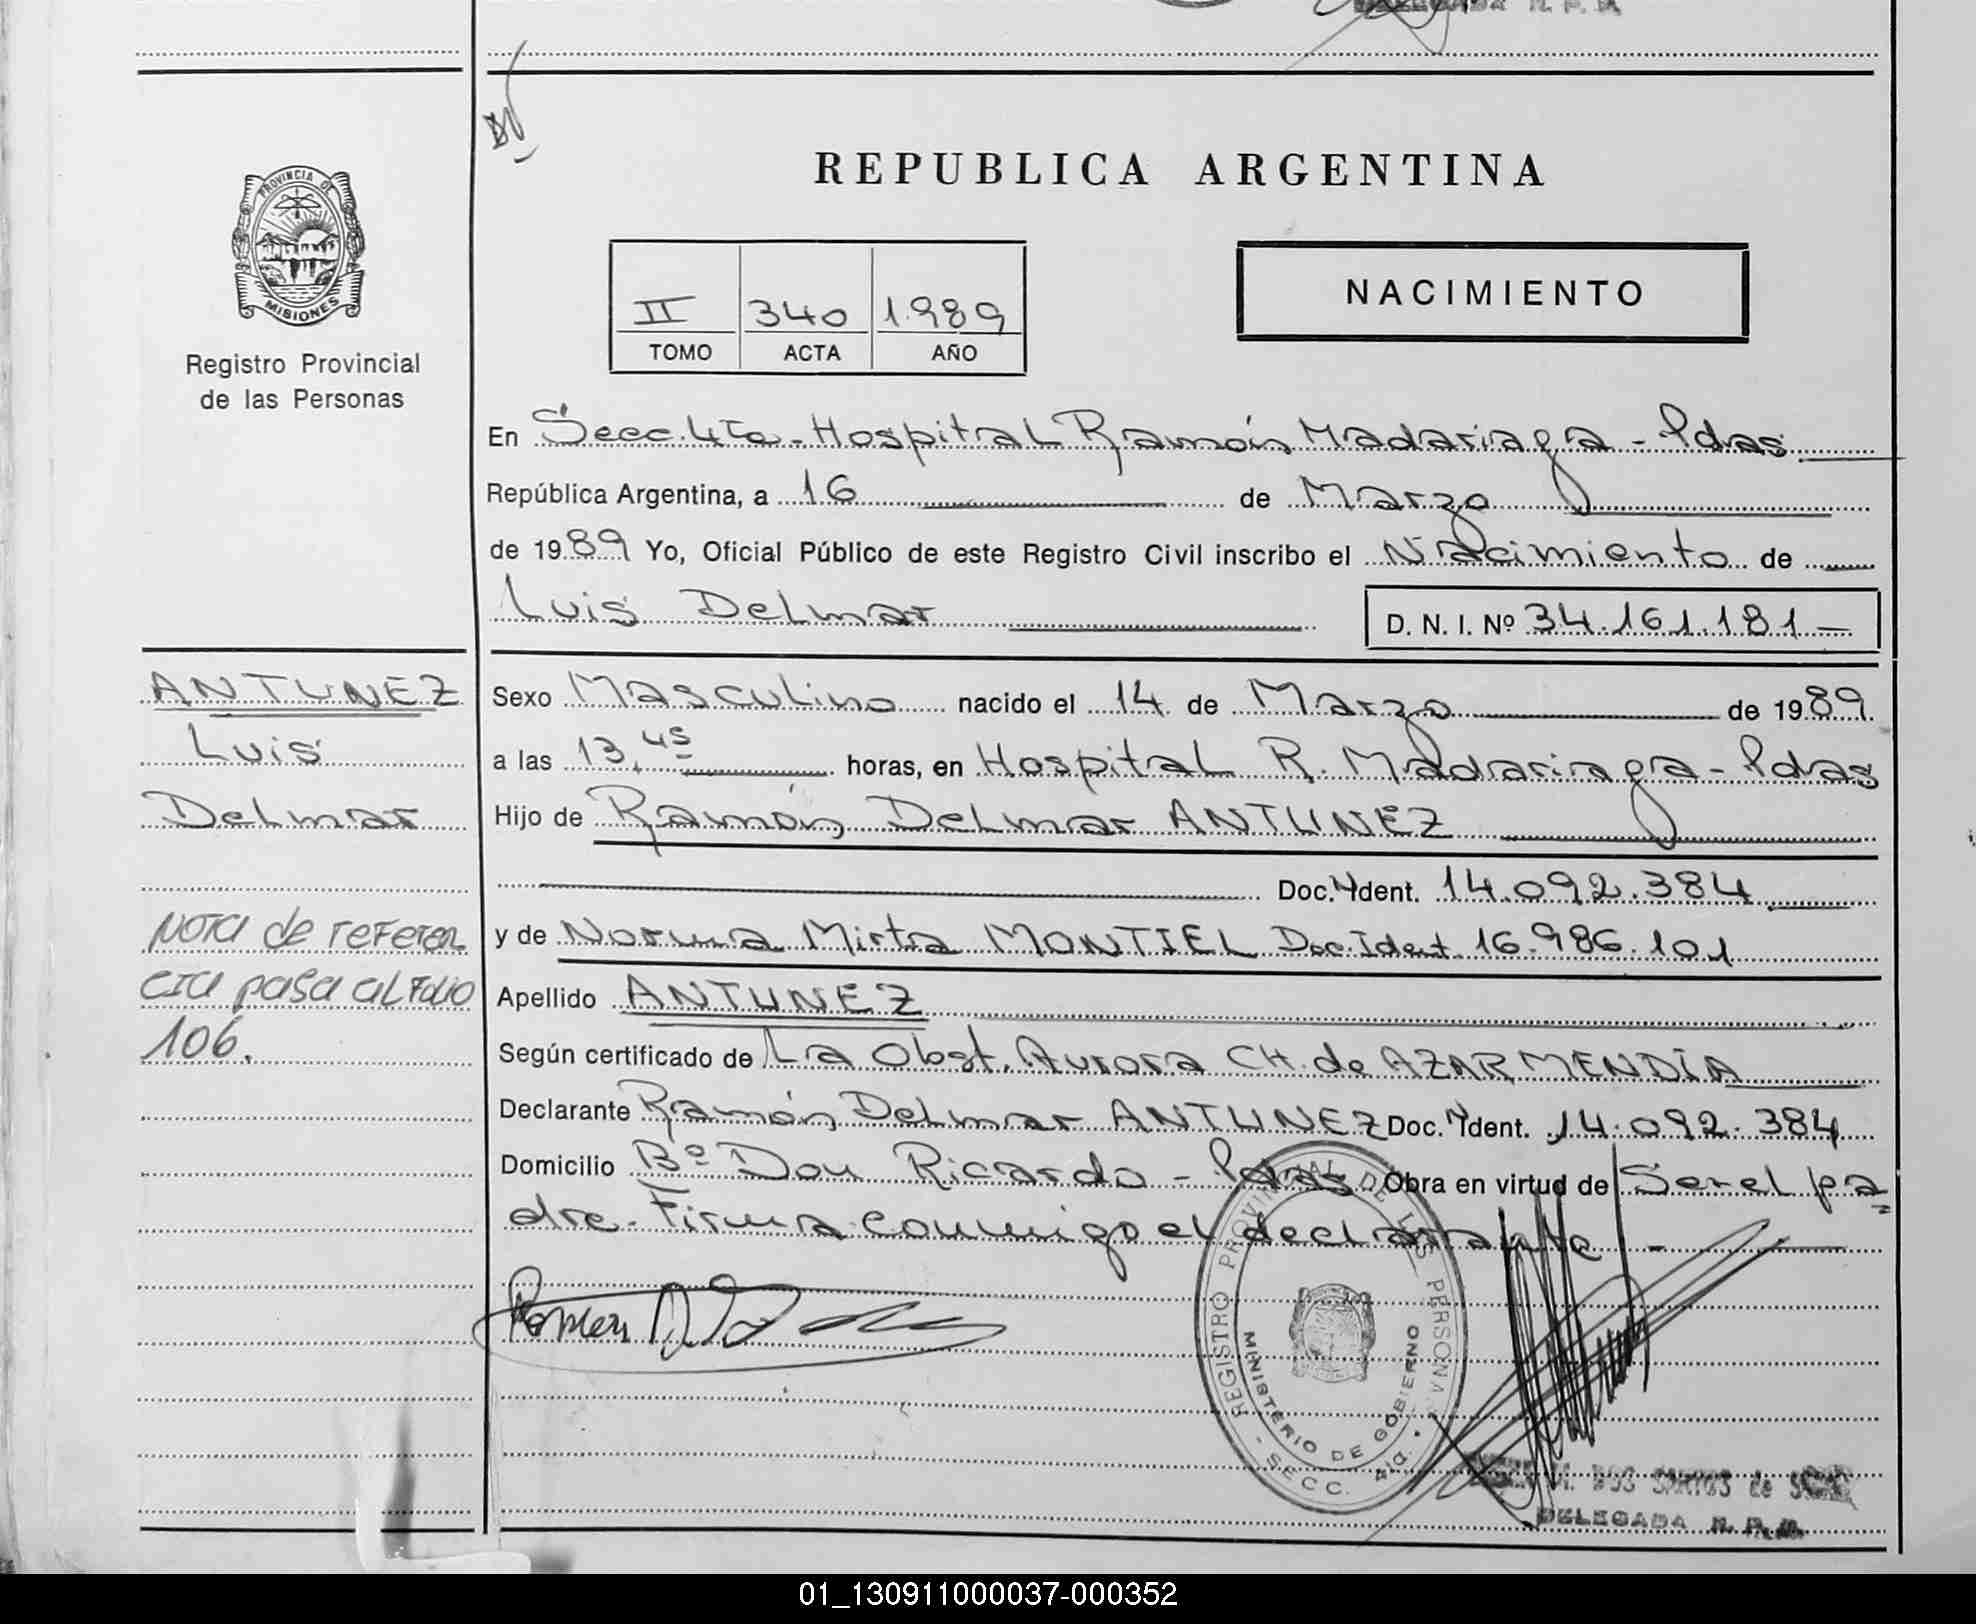 DELEGADA R. P. P.
REPUBLICA ARGENTINA
PROVINCIA DE
MISIONES
Registro Provincial
de las Personas
II 340 1.989
TOMO ACTA AÑO
NACIMIENTO
En Secc. 4ta - Hospital Ramón Madariaga - Pdas
República Argentina, a 16 de Marzo
de 1989 Yo, Oficial Público de este Registro Civil inscribo el Nacimiento de
Luis Delmar D. N. I. Nº 34.161.181 -
ANTUNEZ
Luis
Delmar
Nota de referen
cia pasa al Folio
106.
Sexo Masculino nacido el 14 de Marzo de 1989
a las 13,45 horas, en Hospital R. Madariaga - Pdas
Hijo de Ramón Delmar ANTUNEZ
Doc. Ident. 14.092.384
y de Norma Mirta MONTIEL Doc. Ident. 16.986.101
Apellido ANTUNEZ
Según certificado de La Obst. Aurora CH. de AZARMENDÍA
Declarante Ramón Delmar ANTUNEZ Doc. Ident. 14.092.384
Domicilio Bº Don Ricardo - Pdas Obra en virtud de Ser el pa
dre. Firma conmigo el declarante -
REGISTRO PROVINCIAL DE LAS PERSONAS
MINISTERIO DE GOBIERNO
- SECC. 4ta.
M. DOS SANTOS de
DELEGADA R. P. P.
01_130911000037-000352